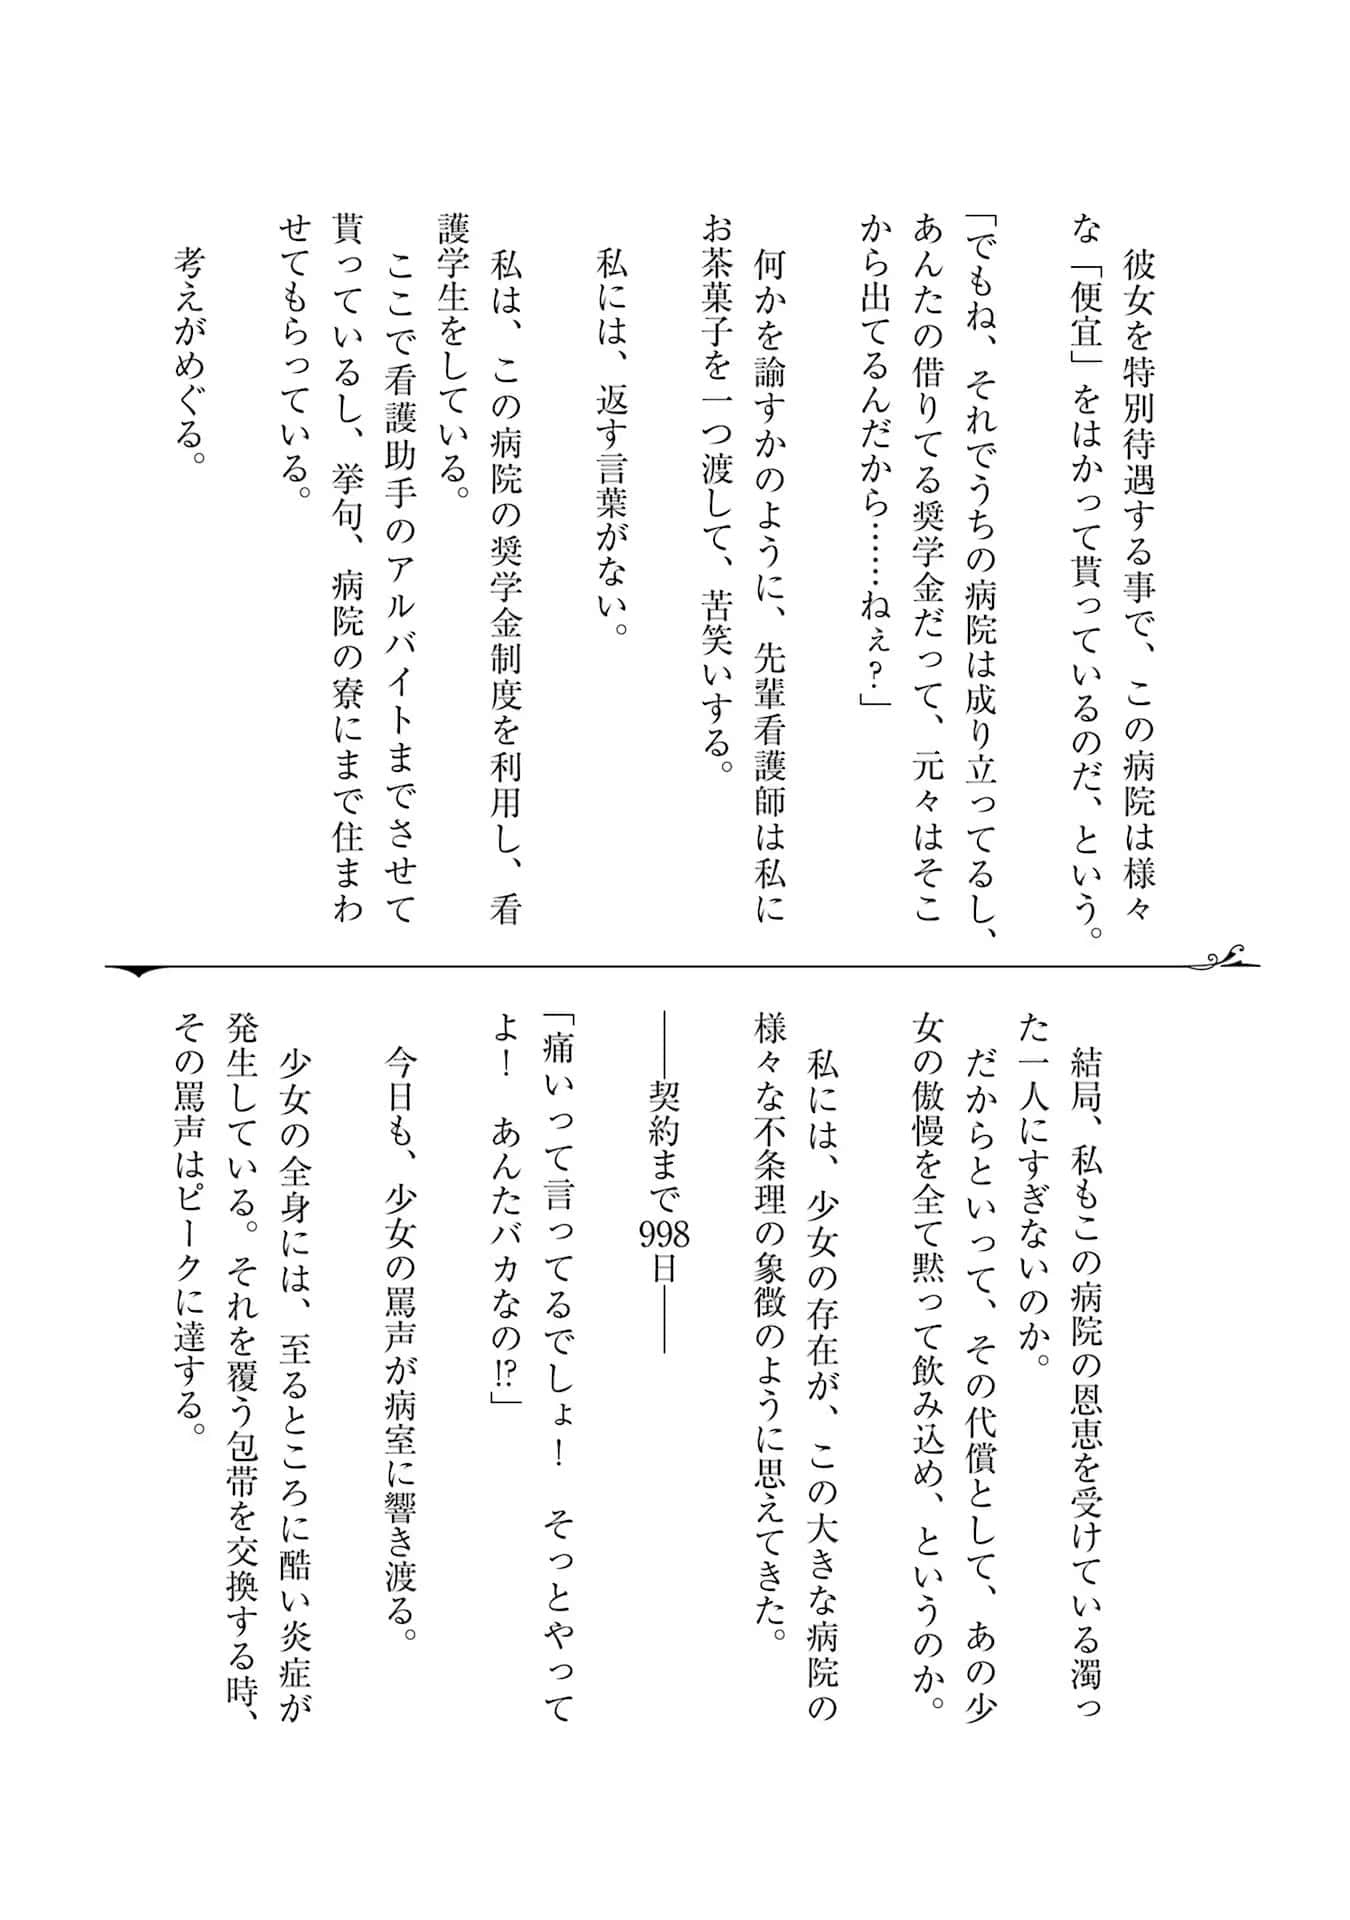 彼女を特別待遇する事で、この病院は様々
な「便宜」をはかって貰っているのだ、という。
「でもね、それでうちの病院は成り立ってるし、
あんたの借りてる奨学金だって、元々はそこ
から出てるんだから……ねぇ？」
　何かを諭すかのように、先輩看護師は私に
お茶菓子を一つ渡して、苦笑いする。
　私には、返す言葉がない。
　私は、この病院の奨学金制度を利用し、看
護学生をしている。
　ここで看護助手のアルバイトまでさせて
貰っているし、挙句、病院の寮にまで住まわ
せてもらっている。
　考えがめぐる。
　結局、私もこの病院の恩恵を受けている濁っ
た一人にすぎないのか。
　だからといって、その代償として、あの少
女の傲慢を全て黙って飲み込め、というのか。
　私には、少女の存在が、この大きな病院の
様々な不条理の象徴のように思えてきた。
――契約まで998日――
「痛いって言ってるでしょ！　そっとやって
よ！　あんたバカなの!?」
　今日も、少女の罵声が病室に響き渡る。
　少女の全身には、至るところに酷い炎症が
発生している。それを覆う包帯を交換する時、
その罵声はピークに達する。